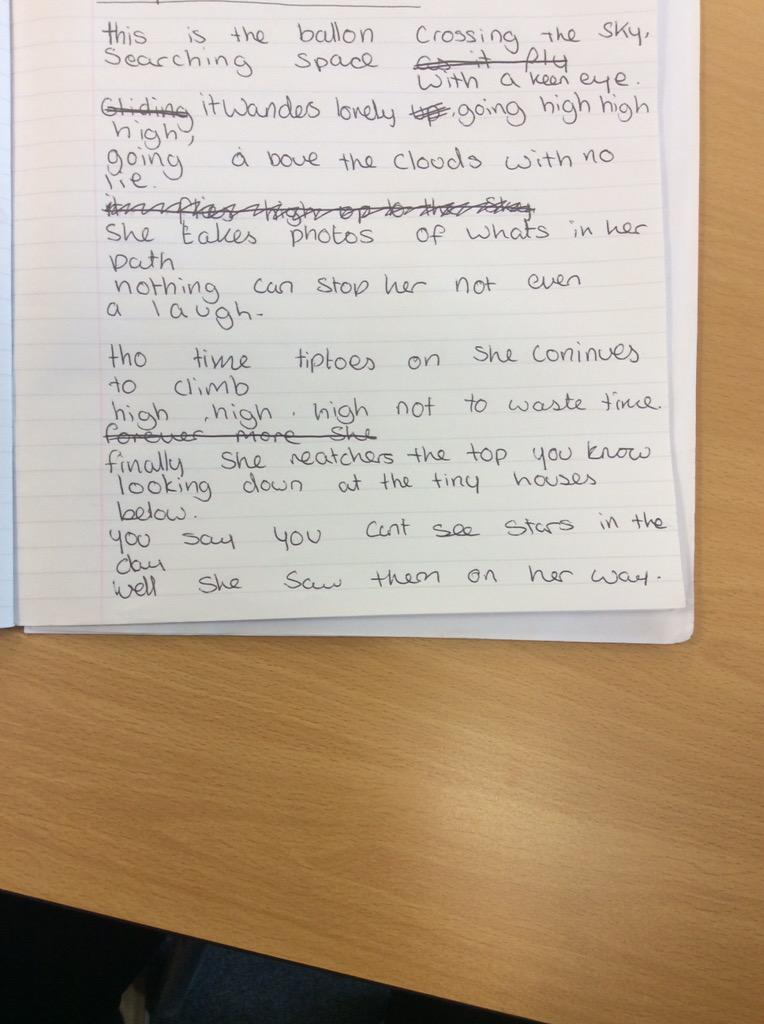 this is the ballon Crossing the sky,
Searching space as it fly
with a keen eye.
Gliding it wandes lonely up, going high high
high,
going a bove the clouds with no
lie.
She takes photos of whats in her
path
nothing can stop her not even
a laugh.
tho time tiptoes on she coninues
to climb
high , high . high not to waste time.
forever more she
finally she reatchers the top you know
looking down at the tiny houses
below.
you say you cant see stars in the
day
well she saw them on her way.